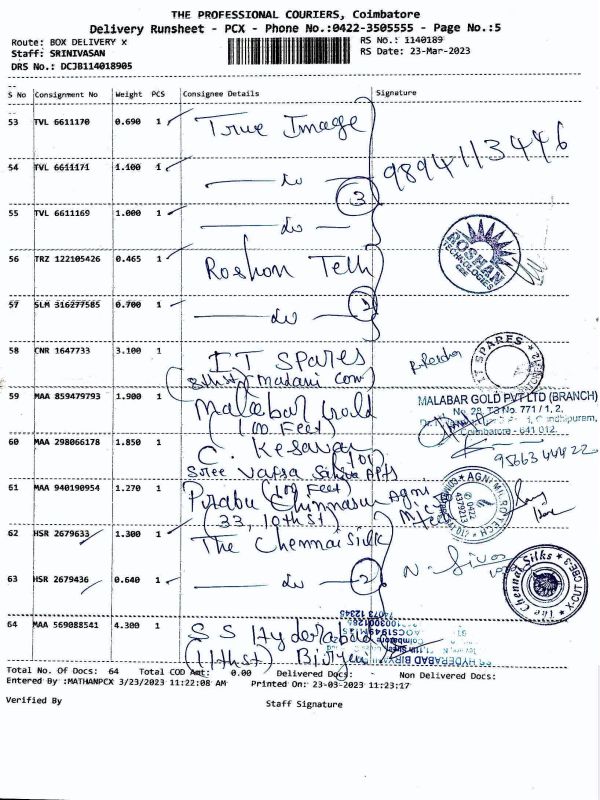 THE PROFESSIONAL COURIERS, Coimbatore
Delivery Runsheet - PCX - Phone No.:0422-3505555 - Page No.:5
Route: BOX DELIVERY x
RS No.: 1140189
Staff: SRINIVASAN
RS Date: 23-Mar-2023
DRS No.: DCJB114018905
S No Consignment No Weight PCS Consignee Details Signature
53 TVL 6611170 0.690 1 True Image
9894113446
54 TVL 6611171 1.100 1 do
3
55 TVL 6611169 1.000 1 do
56 TRZ 122105426 0.465 1 Roshan Tech
ROSHAN TECHNOLOGIES CBE
57 SLM 316277585 0.700 1 do
1
58 CNR 1647733 3.100 1 IT Spares
IT SPARES
(8th st)
59 MAA 859479793 1.900 1 Malabar Gold
(100 Feet)
MALABAR GOLD PVT LTD (BRANCH)
No 28, TS No. 771 / 1, 2,
Coimbatore - 641 012.
60 MAA 298066178 1.850 1 C. Kesavan
Sree Vatsa
9566344422
61 MAA 940190954 1.270 1 Prabu Chinnasun Agni
(100 Feet)
(33, 10th st)
AGNI MICROTECH
0422
4379213
62 HSR 2679633 1.300 1 The Chennai Silk
63 HSR 2679436 0.640 1 do
2
N. Siva
The Chennai Silks
X-CUT CBE-3
64 MAA 569088541 4.300 1 S S Hyderabad
(11th st) Biryani
SS HYDERABAD BIRYANI
Total No. Of Docs: 64 Total COD Amt: 0.00 Delivered Docs: Non Delivered Docs:
Entered By :MATHANPCX 3/23/2023 11:22:08 AM Printed On: 23-03-2023 11:23:17
Verified By Staff Signature